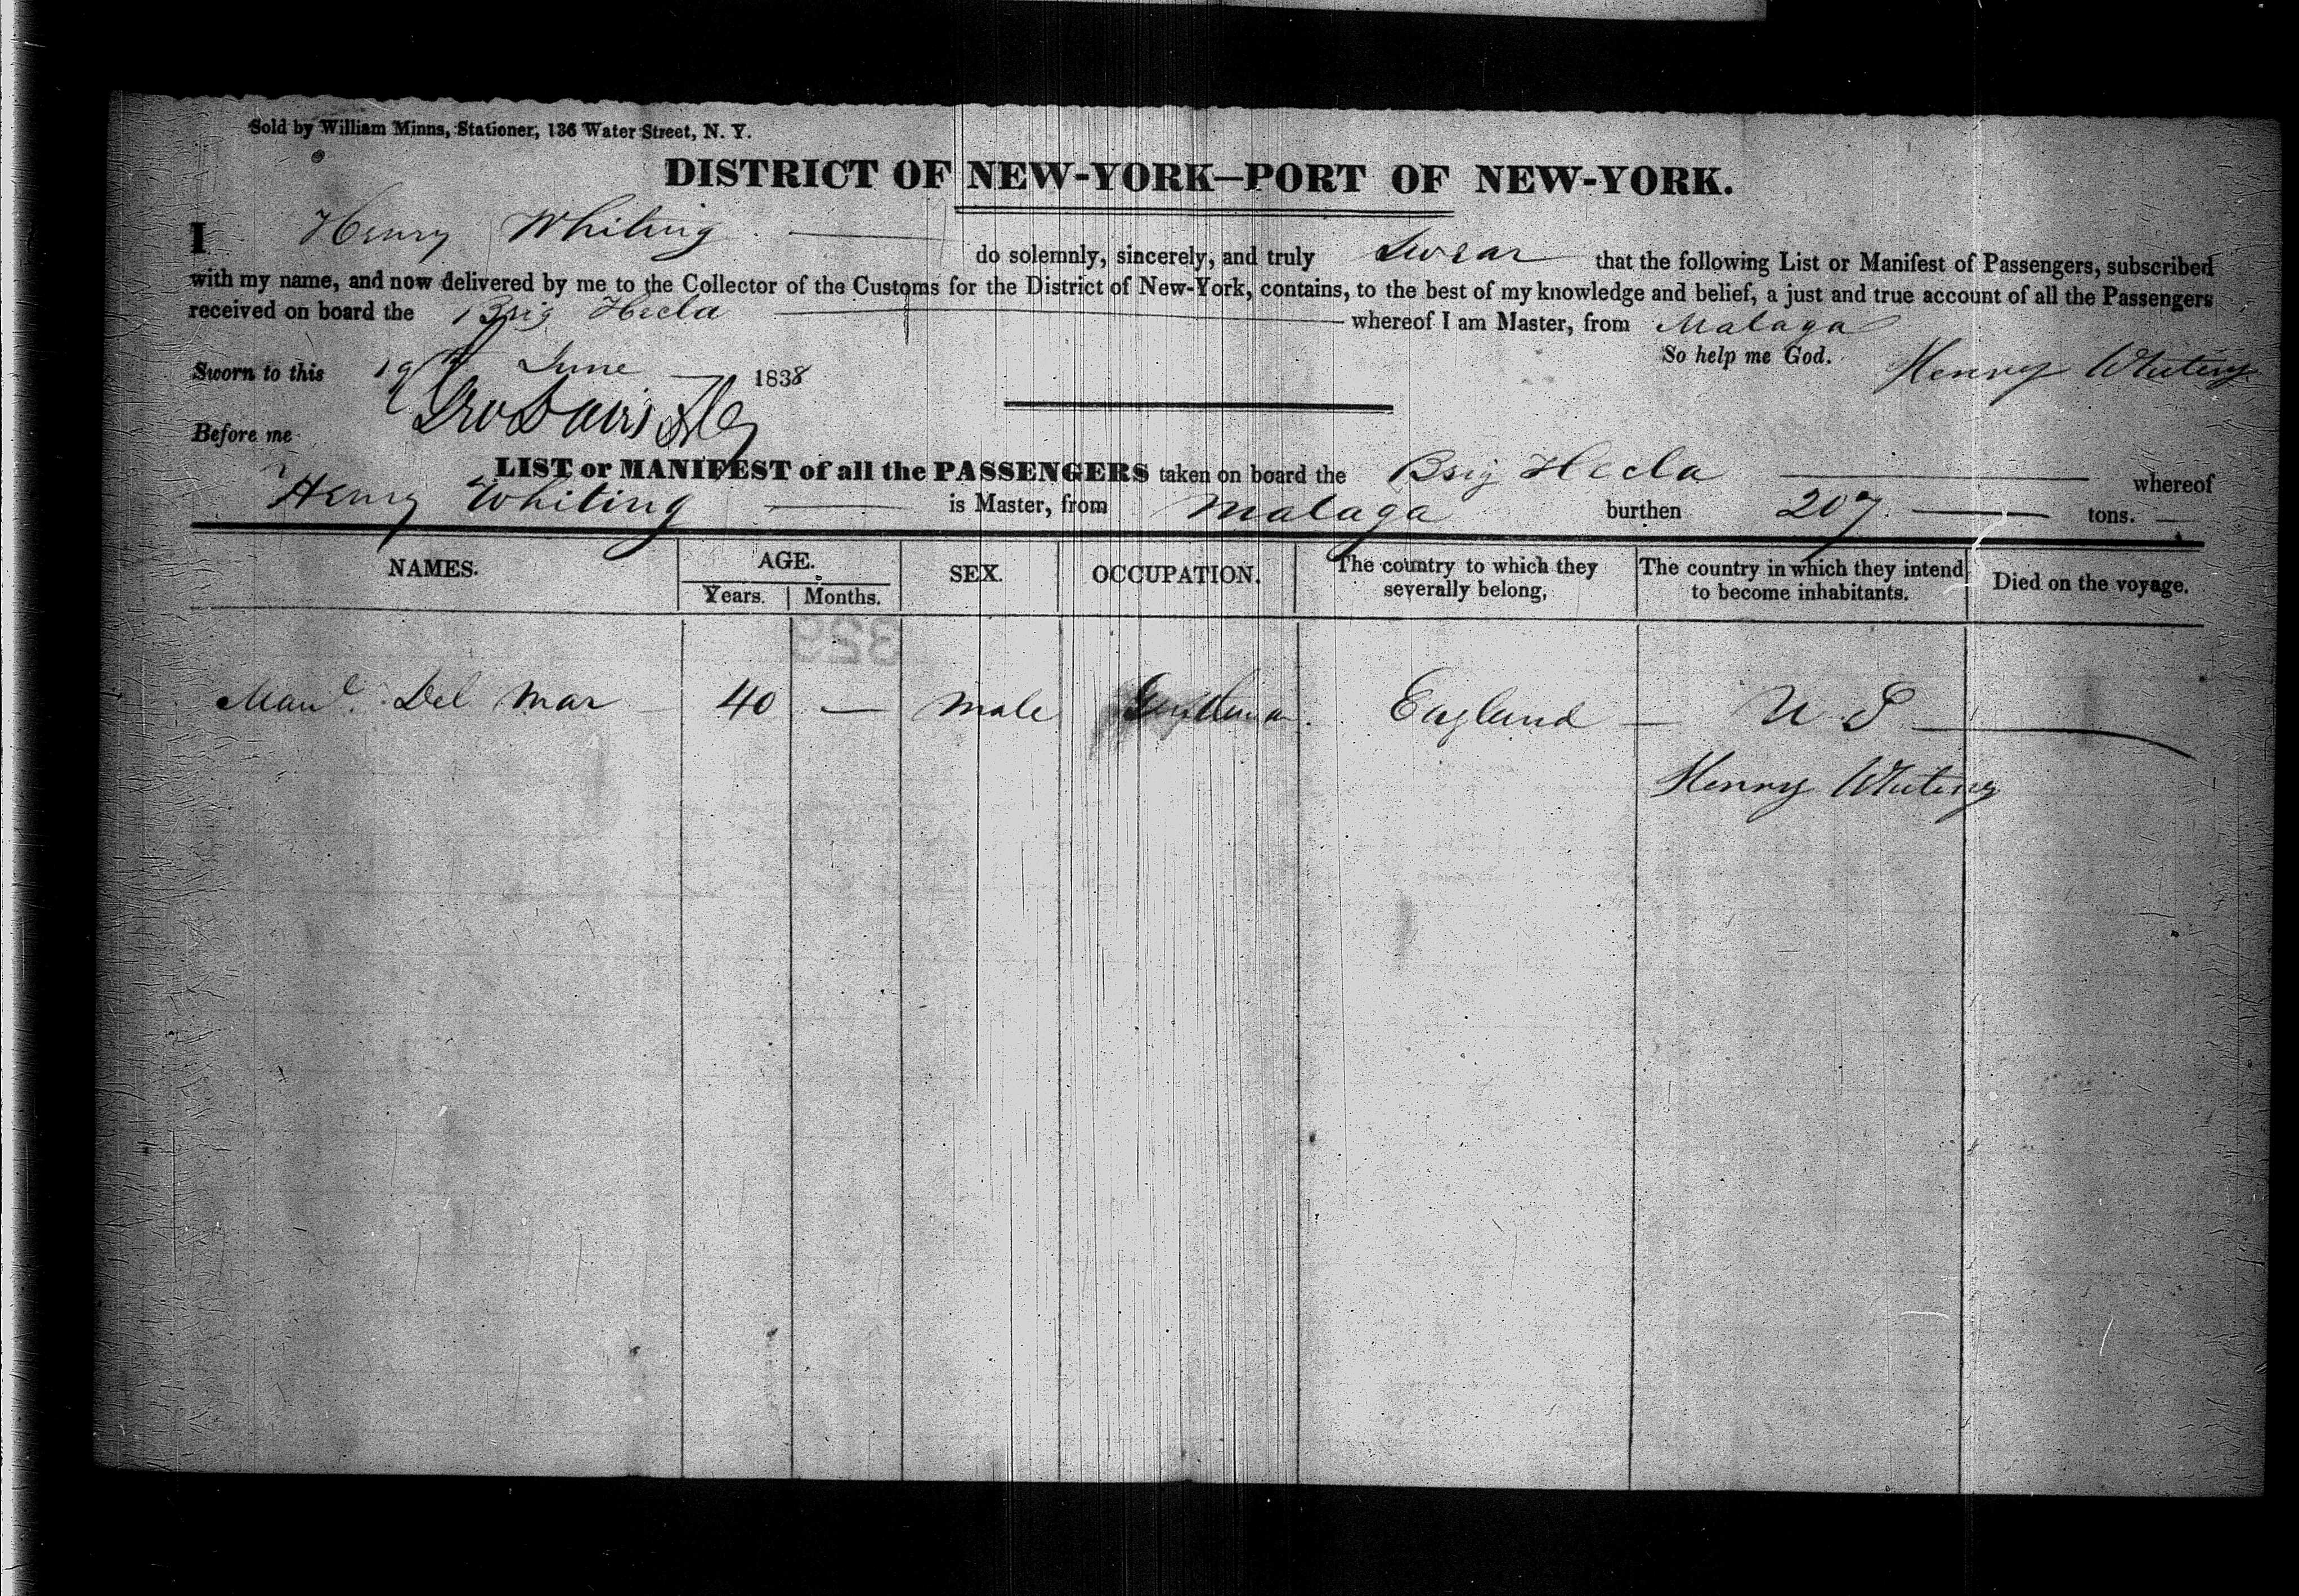 Sold by William Minns, Stationer, 136 Water Street, N. Y.
DISTRICT OF NEW-YORK—PORT OF NEW-YORK.
I Henry Whiting do solemnly, sincerely, and truly Swear that the following List or Manifest of Passengers, subscribed
with my name, and now delivered by me to the Collector of the Customs for the District of New-York, contains, to the best of my knowledge and belief, a just and true account of all the Passengers
received on board the Brig Hecla whereof I am Master, from Malaga
So help me God. Henry Whiting
Sworn to this 19th June 1838
Before me
LIST or MANIFEST of all the PASSENGERS taken on board the Brig Hecla whereof
Henry Whiting is Master, from Malaga burthen 207 tons.
NAMES. AGE. Years. Months. SEX. OCCUPATION. The country to which they severally belong, The country in which they intend to become inhabitants. Died on the voyage.
329
Manl. Del Mar 40 — male Gentleman England — U S
Henry Whiting